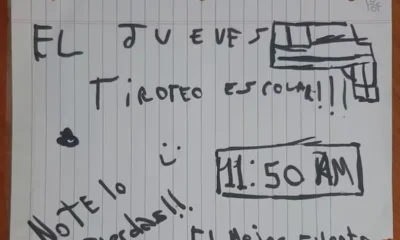 EL JUEVES
TIROTEO ESCOLAR!!!
11:50 AM
NOTE lo
El Mejor